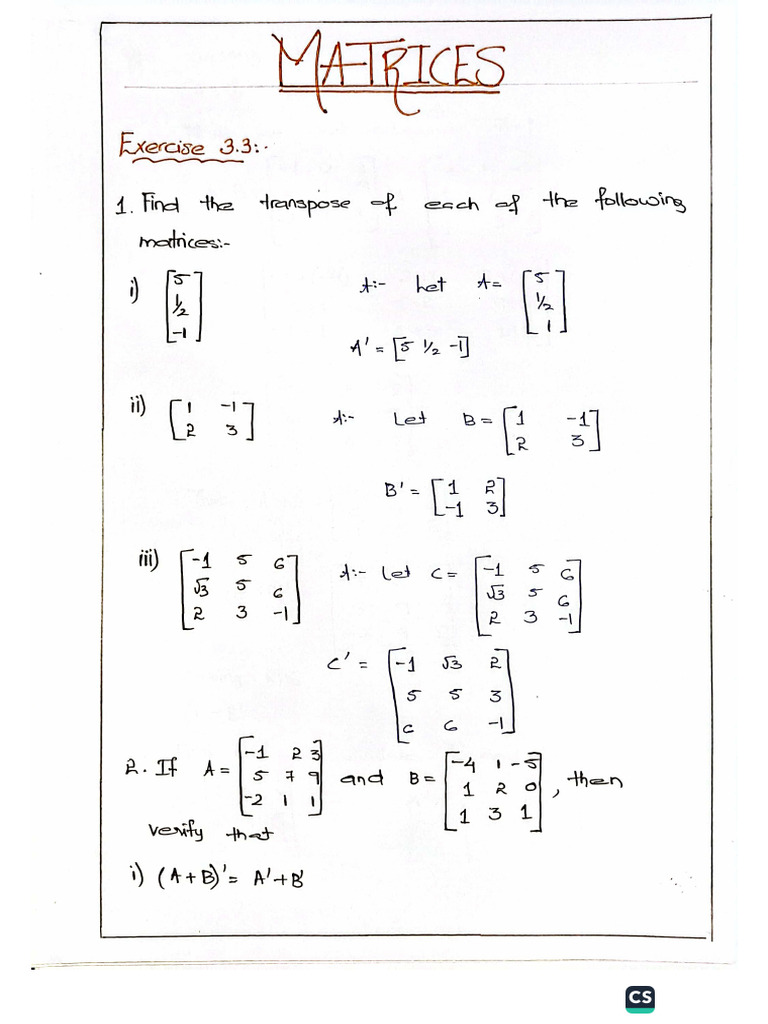 MATRICES
Exercise 3.3:-
1. Find the transpose of each of the following
matrices:-
i) [5 1/2 -1] A:- Let A = [5 1/2 1]
A' = [5 1/2 -1]
ii) [1 -1 2 3] A:- Let B = [1 -1 2 3]
B' = [1 2 -1 3]
iii) [-1 5 6 √3 5 6 2 3 -1] A:- Let C = [-1 5 6 √3 5 6 2 3 -1]
C' = [-1 √3 2 5 5 3 6 6 -1]
2. If A = [-1 2 3 5 7 9 -2 1 1] and B = [-4 1 -5 1 2 0 1 3 1], then
verify that
i) (A+B)' = A'+B'
CS